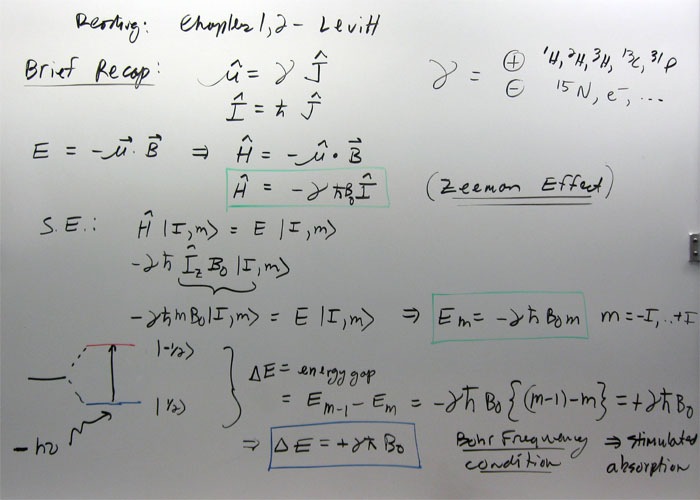 Reading: Chapter 1, 2 - Levitt
Brief Recap: μ̂ = γ Ĵ
Î = ħ Ĵ
γ = ⊕ ¹H, ²H, ³H, ¹³C, ³¹P
⊖ ¹⁵N, e⁻, ...
E = -μ⃗ · B⃗ ⇒ Ĥ = -μ̂ · B⃗
Ĥ = -γ ħB₀Î (Zeeman Effect)
S.E.: Ĥ |I,m⟩ = E |I,m⟩
-γħ Î_z B₀ |I,m⟩
-γħmB₀|I,m⟩ = E |I,m⟩ ⇒ E_m = -γħB₀m m = -I,..+I
|-½⟩
|½⟩
~hν
ΔE = energy gap
= E_{m-1} - E_m = -γħB₀{(m-1)-m} = +γħB₀
⇒ ΔE = +γħ B₀
Bohr Frequency condition ⇒ stimulated absorption